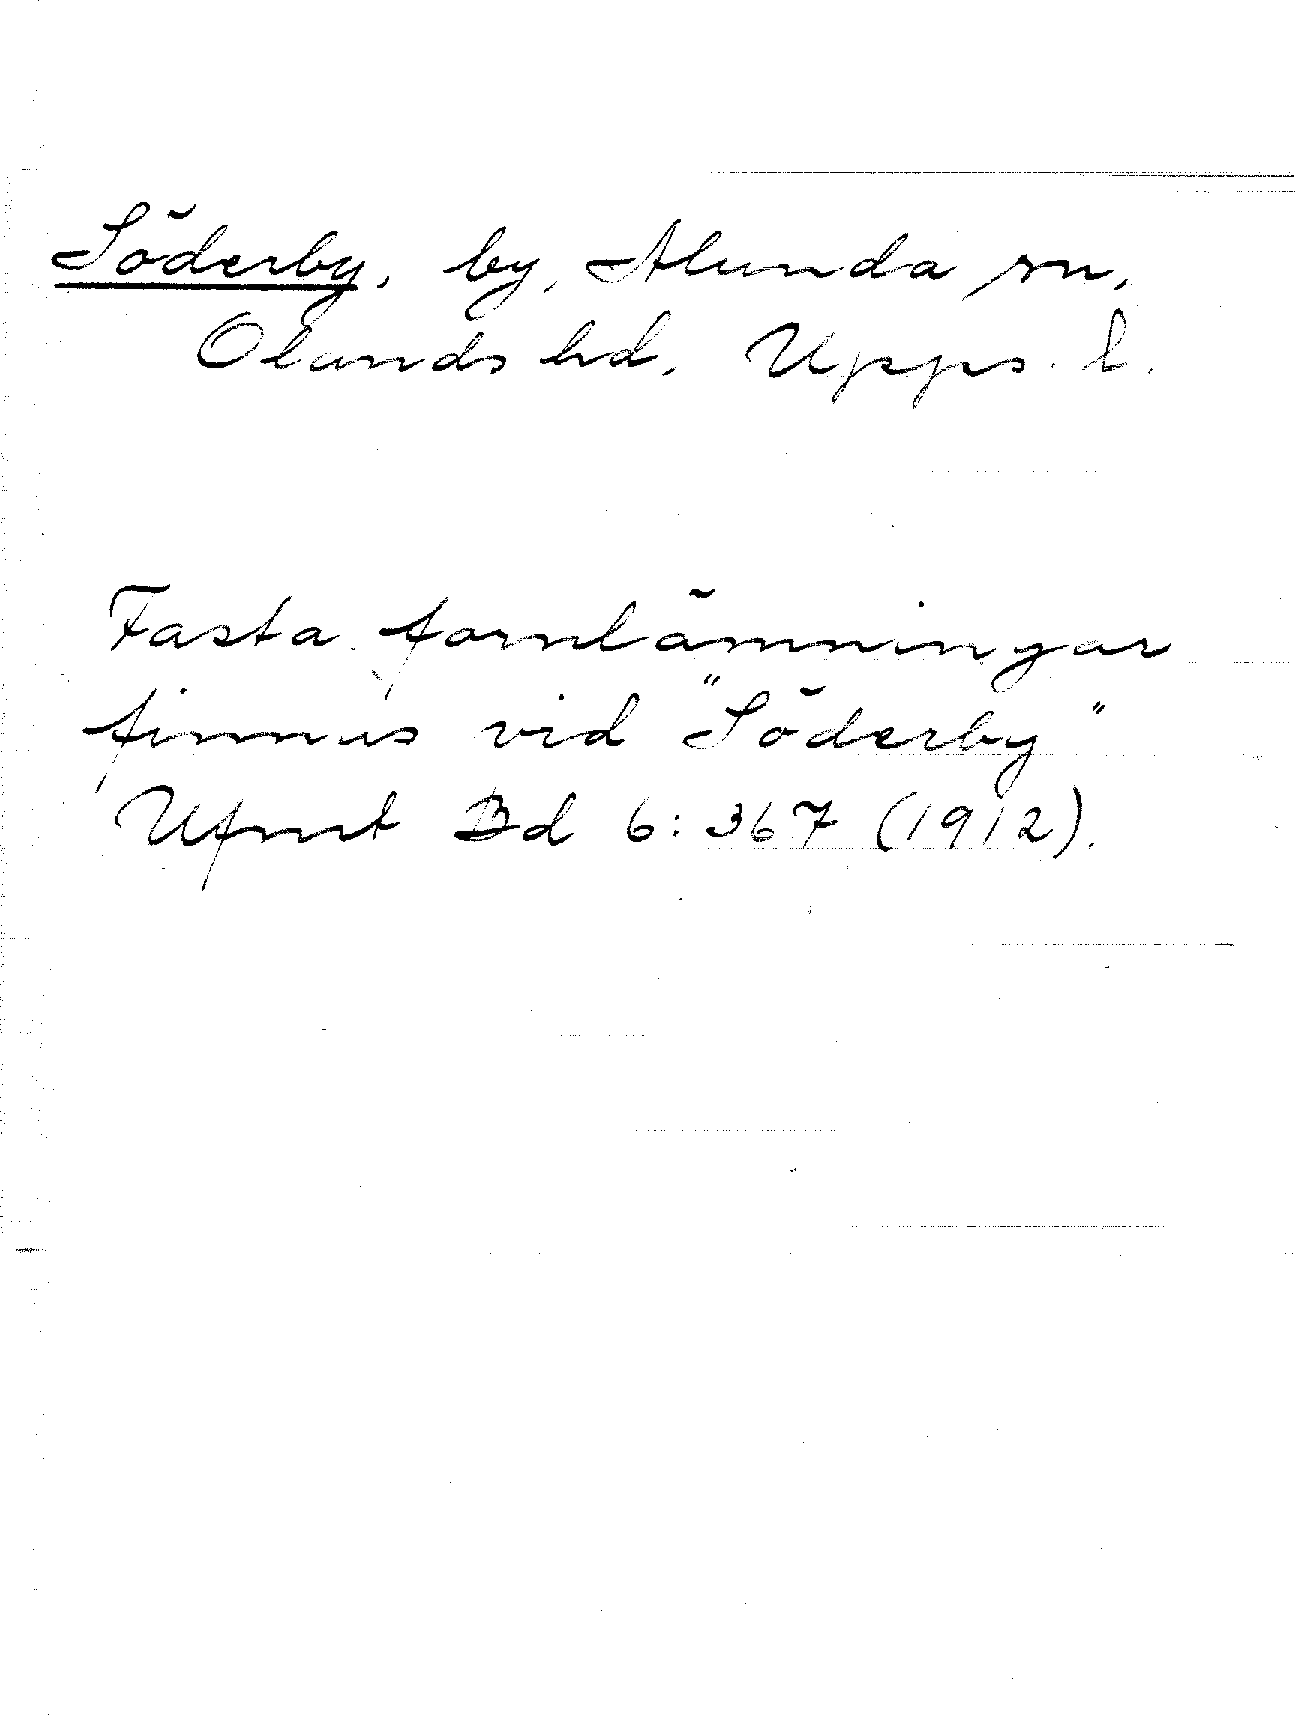 Söderby, by, Alunda sn,
Olands hd, Upps. l.
Fasta fornlämningar
finnas vid "Söderby"
Ufmt Bd 6: 367 (1912).